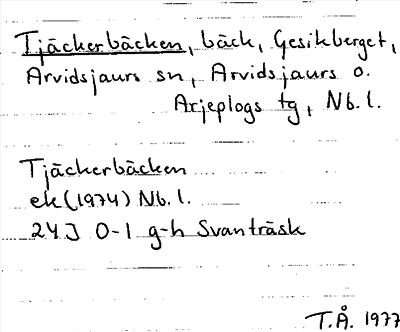 Tjäckerbäcken, bäck, Gesikberget,
Arvidsjaurs sn, Arvidsjaurs o.
Arjeplogs tg, Nb. l.
Tjäckerbäcken
ek (1974) Nb. l.
24J 0-1 g-h Svanträsk
T.Å. 1977